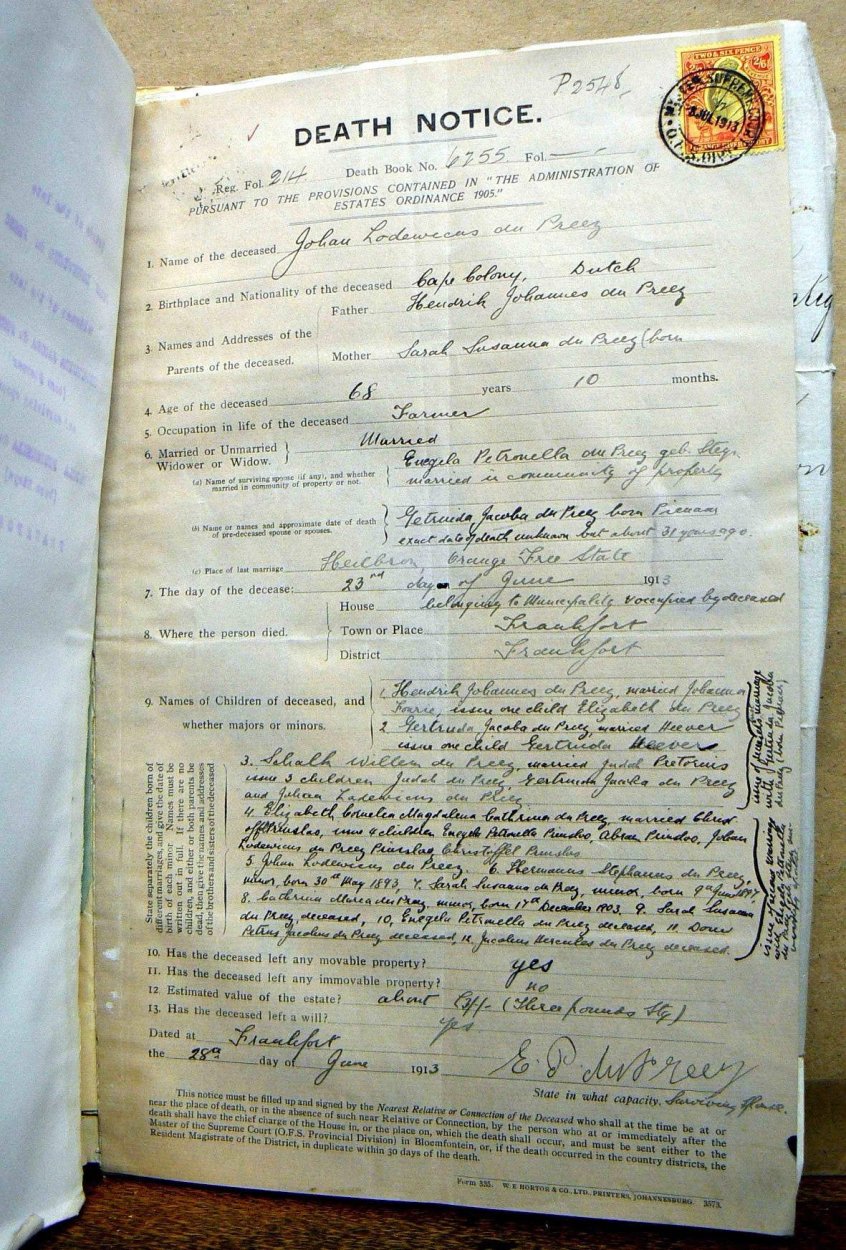 P2548,
TWO & SIX PENCE
2/6
JUL 1913
DEATH NOTICE.
Reg. Fol. 214 Death Book No. 6755 Fol. —
PURSUANT TO THE PROVISIONS CONTAINED IN "THE ADMINISTRATION OF
ESTATES ORDINANCE 1905."
1. Name of the deceased Johan Lodewicus du Preez
2. Birthplace and Nationality of the deceased Cape Colony, Dutch
3. Names and Addresses of the Parents of the deceased.
Father Hendrik Johannes du Preez
Mother Sarah Susanna du Preez (born
4. Age of the deceased 68 years 10 months.
5. Occupation in life of the deceased Farmer
6. Married or Unmarried Widower or Widow. Married
(a) Name of surviving spouse (if any), and whether married in community of property or not.
Engela Petronella du Preez geb. Steyn
married in community of property
(b) Name or names and approximate date of death of pre-deceased spouse or spouses.
Getruida Jacoba du Preez born Pienaar
exact date of death unknown but about 31 years ago.
(c) Place of last marriage Heilbron, Orange Free State
7. The day of the decease: 23rd day of June 1913
8. Where the person died.
House belonging to Municipality & occupied by deceased
Town or Place Frankfort
District Frankfort
9. Names of Children of deceased, and
whether majors or minors.
1 Hendrik Johannes du Preez, married Johanna
Fourie, issue one child Elizabeth du Preez
2 Gertruda Jacoba du Preez married Heever
issue one child Gertruda Heever
3. Schalk Willem du Preez married Judal Pretorius
issue 3 children Judal du Preez, Gertruida Jacoba du Preez
and Johan Lodewicus du Preez.
4. Elizabeth Cornelia Magdalena Cathrina du Preez married
issue 4 children Engela Petronella Prinsloo, Abram Prinsloo, Johan
Lodewicus du Preez Prinsloo, Christoffel Prinsloo
5 Johan Lodewicus du Preez. 6. Hermanus Stephanus du Preez,
minor, born 30th May 1893, 7. Sarah Susanna du Preez, minor, born 9th June
8. Cathrina Maria du Preez, minor, born 17th December 1903. 9. Sarah Susanna
du Preez, deceased, 10, Engela Petronella du Preez deceased, 11.
Petrus Jacobus du Preez deceased, 12. Jacobus Hercules du Preez deceased.
State separately the children born of
different marriages, and give the date of
birth of each minor. Names must be
written out in full. If there are no
children, and either or both parents be
dead, then give the names and addresses
of the brothers and sisters of the deceased
issue of
marriage
with Gertruida Jacoba
du Preez (born Pienaar)
issue of
marriage
10. Has the deceased left any movable property? yes
11. Has the deceased left any immovable property? no
12. Estimated value of the estate? about £3/-/- (Three pounds Stg)
13. Has the deceased left a will? yes
Dated at Frankfort
the 28th day of June 1913
E. P. du Preez
State in what capacity. Surviving spouse.
This notice must be filled up and signed by the Nearest Relative or Connection of the Deceased who shall at the time be at or
near the place of death, or in the absence of such near Relative or Connection, by the person who at or immediately after the
death shall have the chief charge of the House in, or the place on, which the death shall occur, and must be sent either to the
Master of the Supreme Court (O.F.S. Provincial Division) in Bloemfontein, or, if the death occurred in the country districts, the
Resident Magistrate of the District, in duplicate within 30 days of the death.
Form 335. W. E HORTOR & CO., LTD., PRINTERS, JOHANNESBURG. 3573.